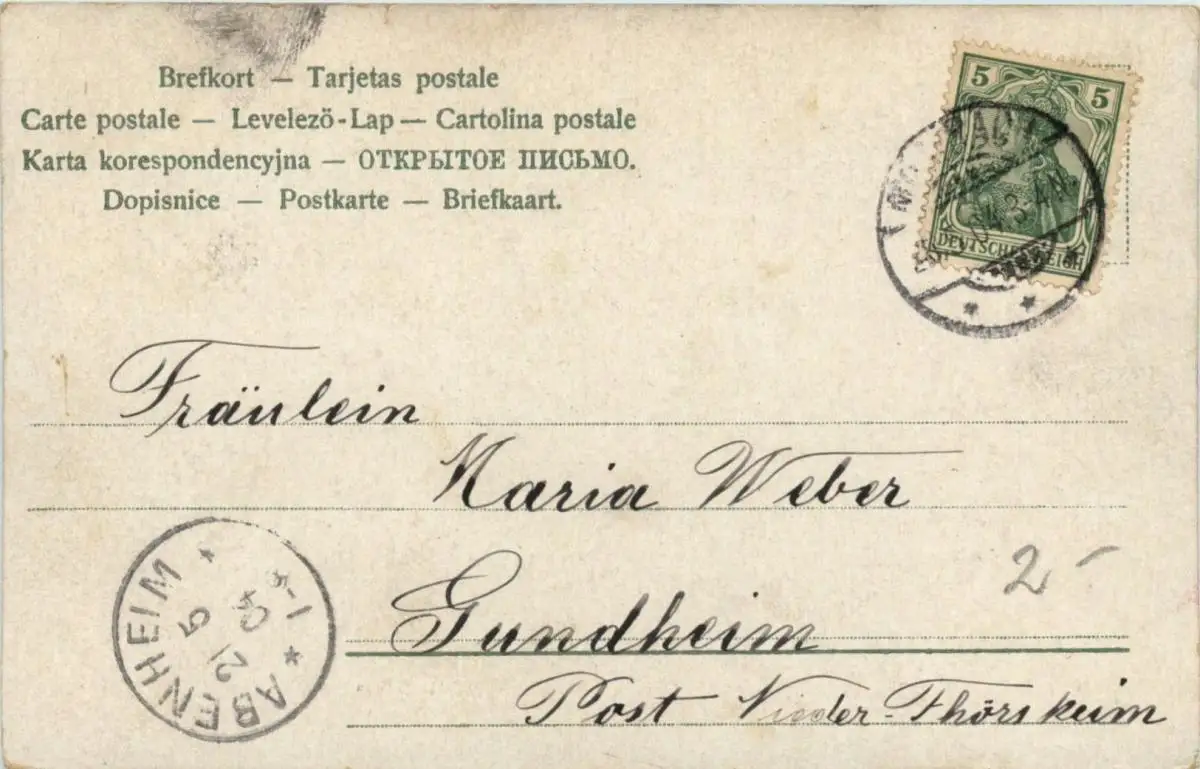 Brefkort — Tarjetas postale
Carte postale — Levelezö-Lap — Cartolina postale
Karta korespondencyjna — ОТКРЫТОЕ ПИСЬМО.
Dopisnice — Postkarte — Briefkaart.
5 5
DEUTSCHES REICH
Fräulein
Maria Weber
2-
Gundheim
Post Nieder-Flörsheim
ABENHEIM